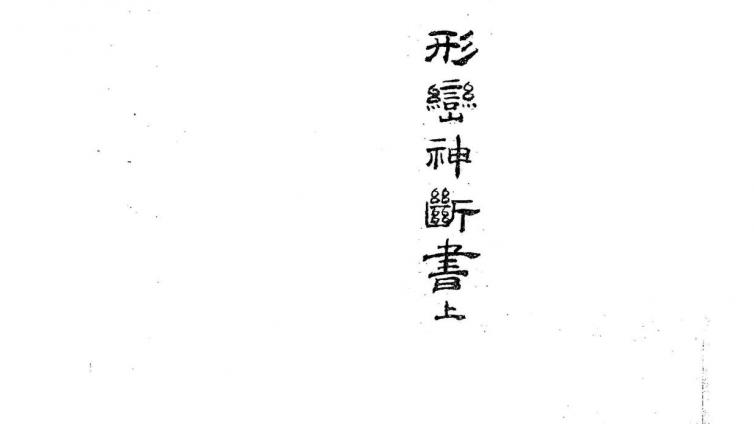 形巒神斷書上